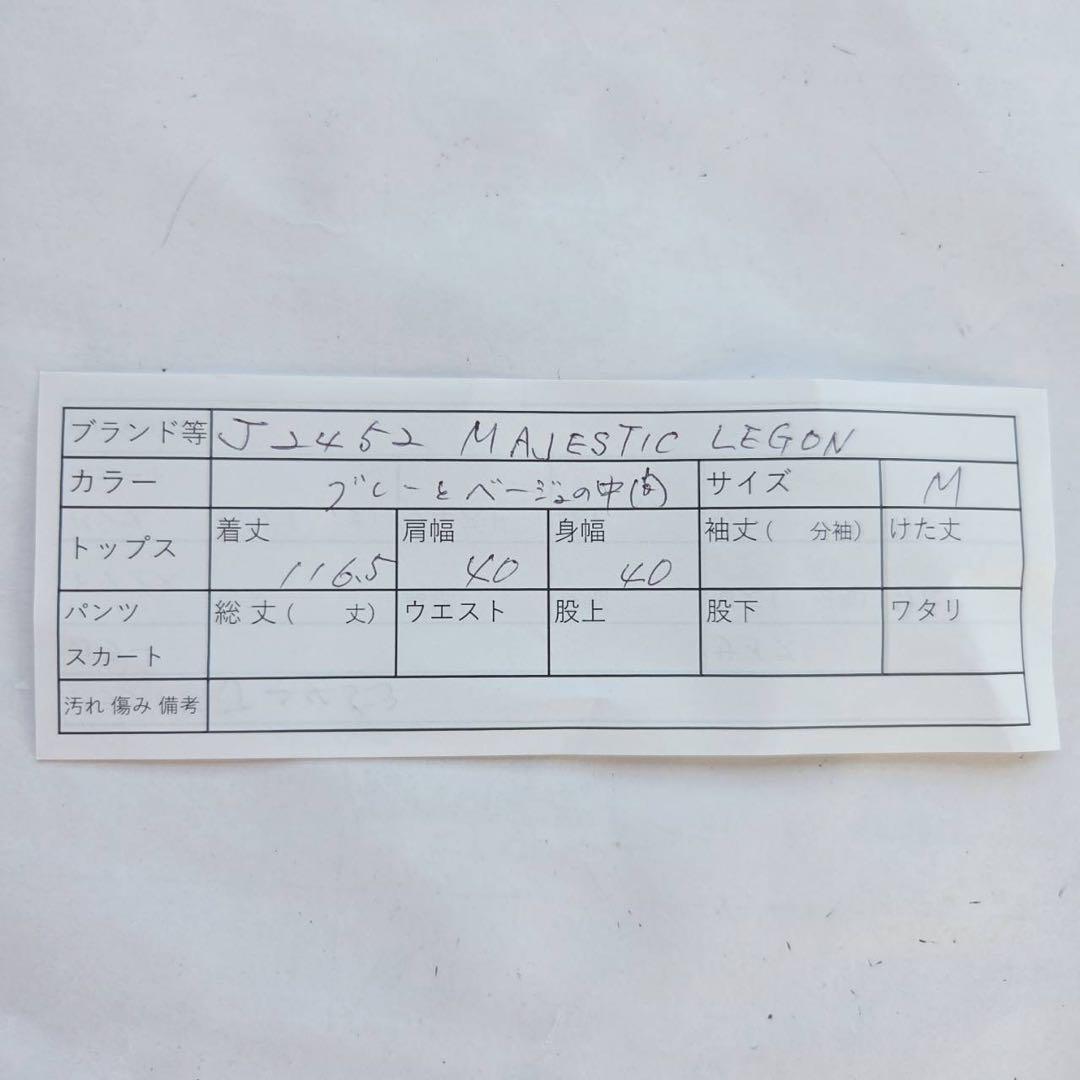 ブランド等 J2452 MAJESTIC LEGON
カラー グレーとベージュの中間 サイズ M
トップス 着丈 116.5 肩幅 40 身幅 40 袖丈( 分袖) けた丈
パンツ スカート 総丈( 丈) ウエスト 股上 股下 ワタリ
汚れ 傷み 備考